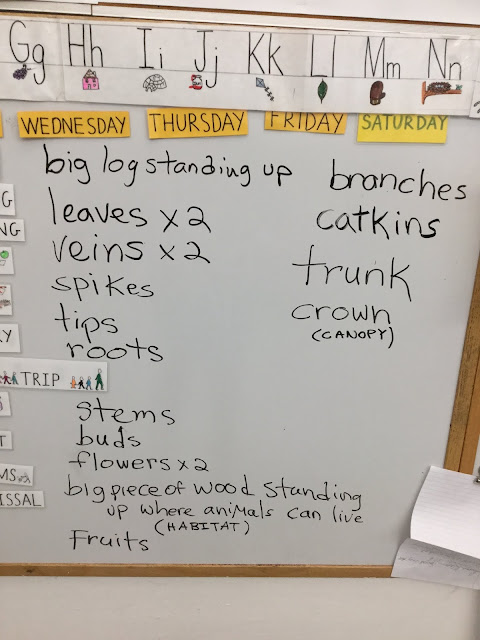 Gg Hh Ii Jj Kk Ll Mm Nn
WEDNESDAY THURSDAY FRIDAY SATURDAY
big log standing up
leaves x 2
veins x 2
spikes
tips
roots
TRIP
stems
buds
flowers x 2
big piece of wood standing
up where animals can live
(HABITAT)
Fruits
branches
catkins
trunk
crown
(CANOPY)
G
NG
RY
T
MS
ISSAL